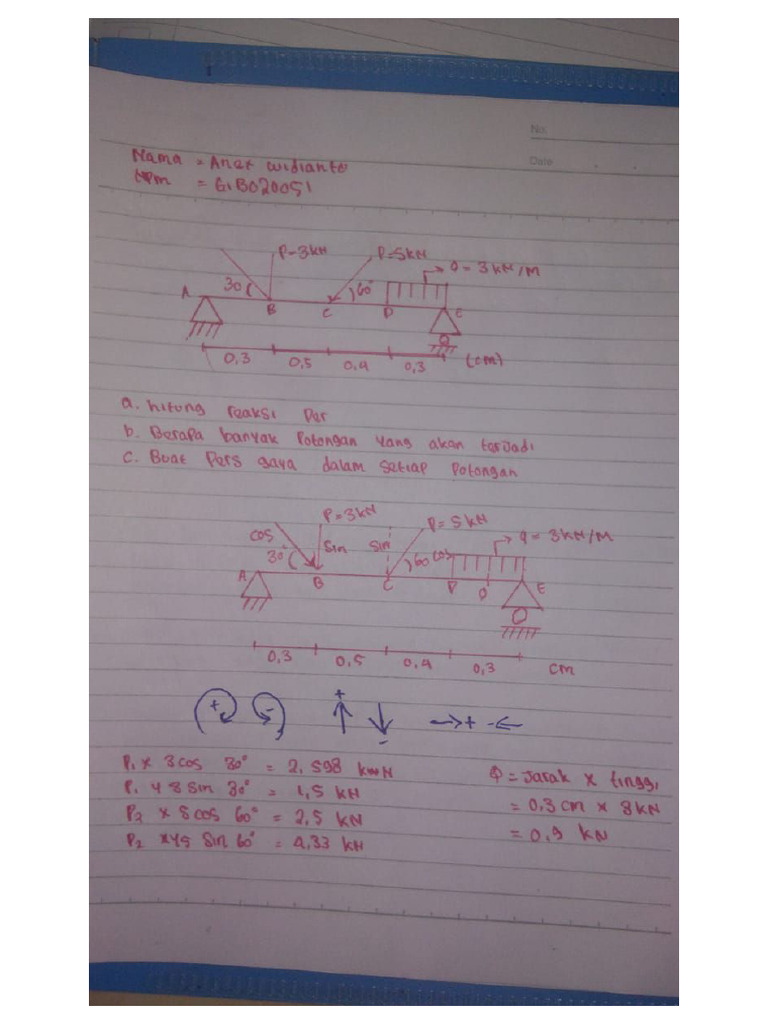 No.
Date
Nama = Anet widianto
npm = G1B020051
P=3kN P=5kN
q = 3kN/M
30 60°
A B C D E
0,3 0,5 0,4 0,3 (cm)
a. hitung reaksi Per
b. Berapa banyak Potongan yang akan terjadi
c. Buat Pers gaya dalam setiap Potongan
P=3kN P=5kN
cos sin sin q = 3kN/M
30° 60 cos
A B C D Q E
0,3 0,5 0,4 0,3 cm
+ - + - →+ -←
P₁ x 3 cos 30° = 2,598 kN
P₁ y 3 sin 30° = 1,5 kN
P₂ x 5 cos 60° = 2,5 kN
P₂ y 5 sin 60° = 4,33 kN
Q = Jarak x tinggi
= 0,3 cm x 3kN
= 0,9 kN